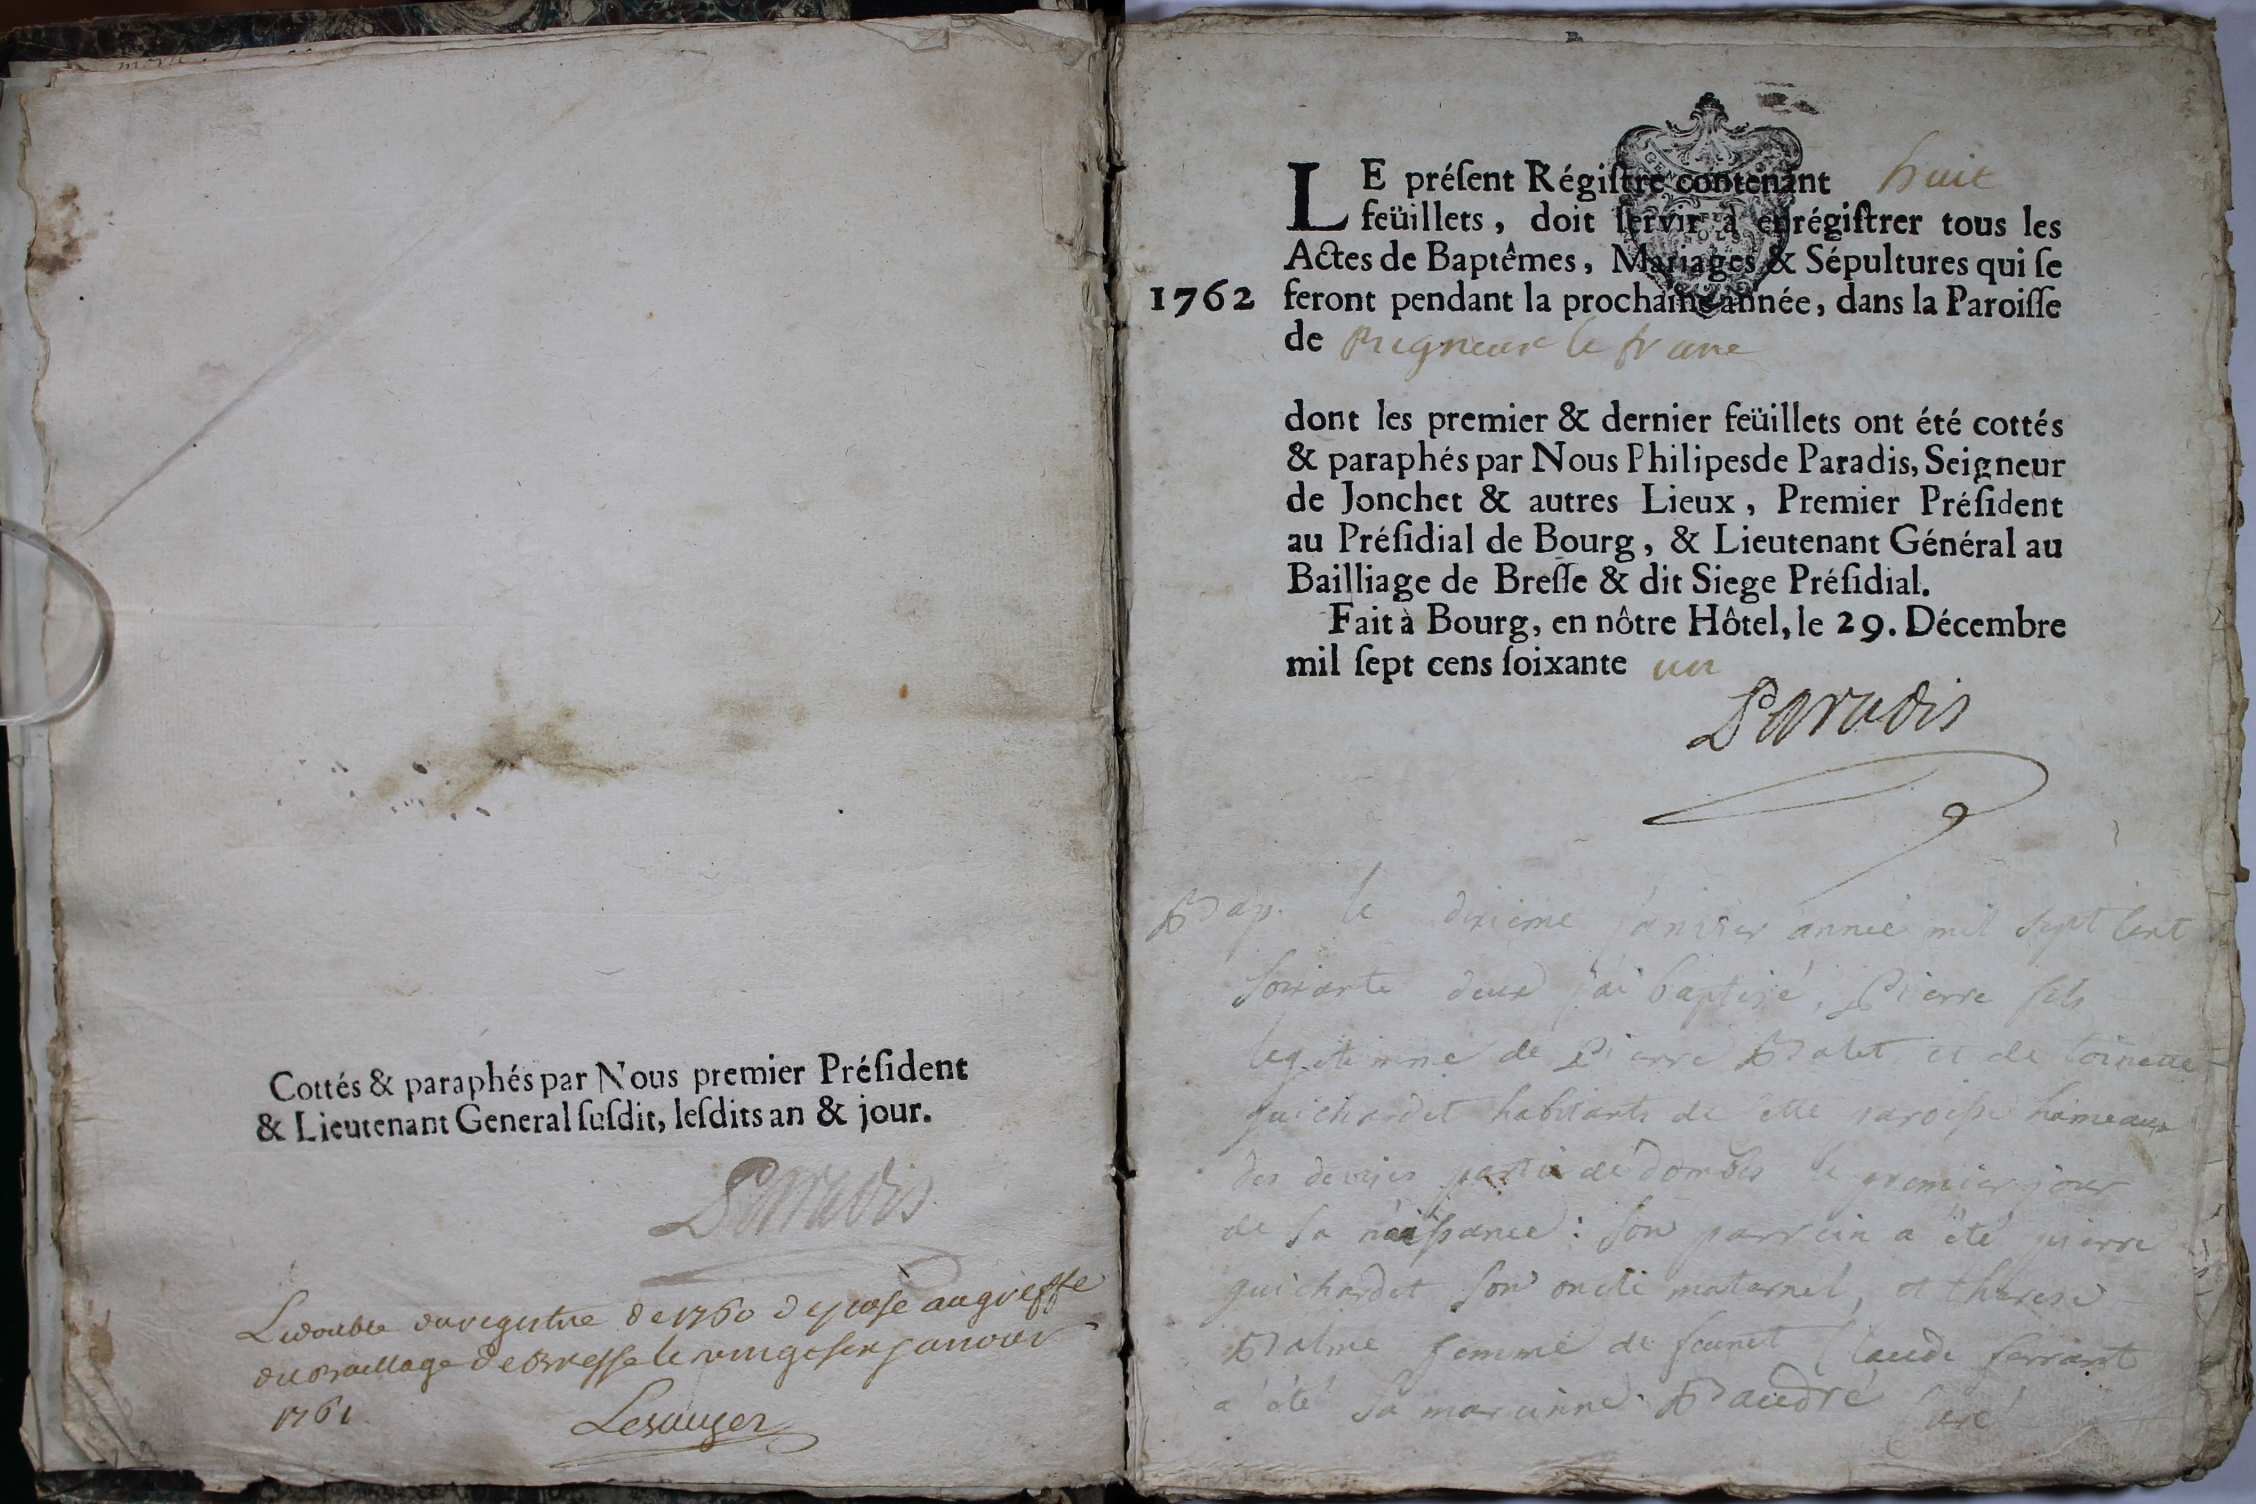 Cottés & paraphés par Nous premier Préſident
& Lieutenant General ſuſdit, leſdits an & jour.
Paradis
Le double du registre de 1760 deposé au greffe
du Bailliage de Bresse le janvier
1761
1762
LE préſent Régiſtre contenant huit
feüillets, doit ſervir à enrégiſtrer tous les
Actes de Baptêmes, Mariages & Sépultures qui ſe
feront pendant la prochaine année, dans la Paroiſſe
de Rigneux le franc
dont les premier & dernier feüillets ont été cottés
& paraphés par Nous Philipes de Paradis, Seigneur
de Jonchet & autres Lieux, Premier Préſident
au Préſidial de Bourg, & Lieutenant Général au
Bailliage de Breſſe & dit Siege Préſidial.
Fait à Bourg, en nôtre Hôtel, le 29. Décembre
mil ſept cens ſoixante un
Paradis
Bap. le dixieme janvier année mil sept cent
soixante deux j'ai baptisé, Pierre fils
legitimme de Pierre Balet et de toinette
guichardet habitants de cette paroisse hameaux
des partie de dombes le premier jour
de sa naissance: son parrain a été pierre
guichardet son oncle maternel, et therese
Balme femme de Claude ferrant
a été sa marainne. Baudré Curé